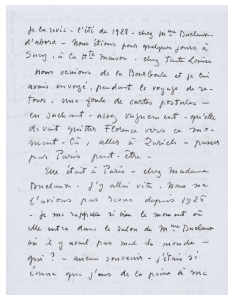 je la revis - l'été de 1928 - chez Mme Duclaux
d'abord - Nous étions pour quelques jours à
Sucy, à la maison - chez Tante Louise
Nous revenions de la Bourboule et je lui
avais envoyé, pendant le voyage de re-
tour, une foule de cartes postales -
en sachant - assez vaguement - qu'elle
devait quitter Florence vers ce mo-
ment-là, aller à Zurich - passer
par Paris peut-être -
Elle était à Paris - chez Madame
Duclaux - J'y allai vite. Nous ne
l'avions pas revue depuis 1926
- Je me rappelle si bien le moment où
elle entra dans le salon de Mme Duclaux
où il y avait pas mal de monde -
qui ? - aucun souvenir - j'étais si
émue que j'avais de la peine à me